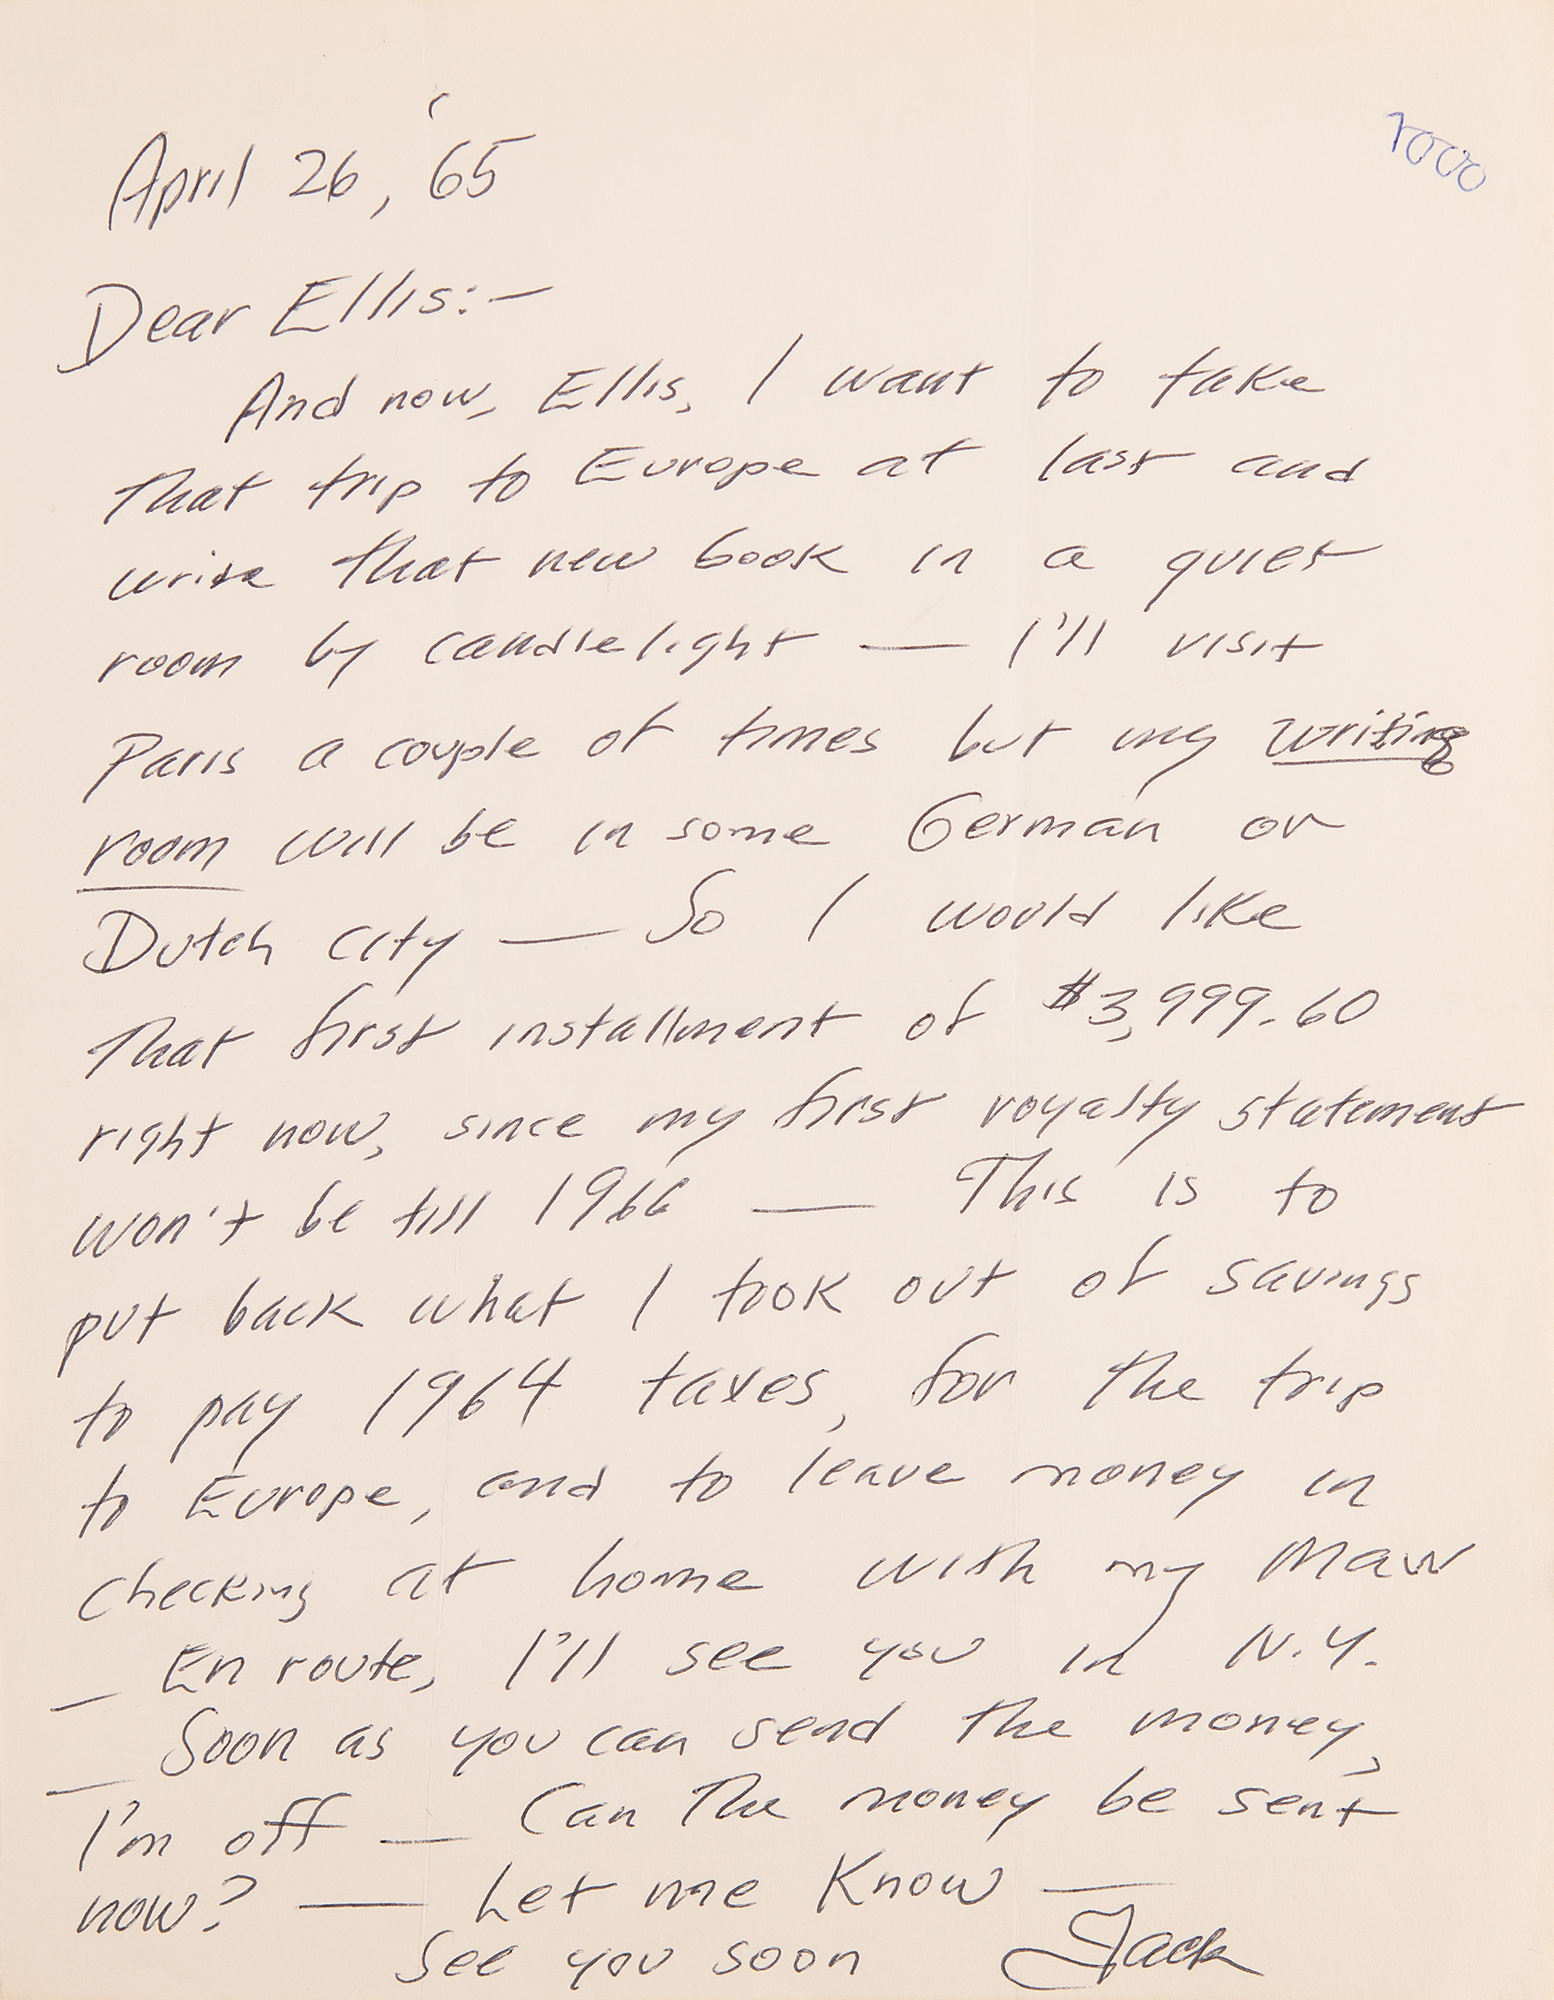 April 26, '65
7000
Dear Ellis:—
And now, Ellis, I want to take
that trip to Europe at last and
write that new book in a quiet
room by candlelight — I'll visit
Paris a couple of times but my writing
room will be in some German or
Dutch city — So I would like
that first installment of $3,999.60
right now, since my first royalty statement
won't be till 1966 — This is to
put back what I took out of savings
to pay 1964 taxes, for the trip
to Europe, and to leave money in
checking at home with my Maw
— En route, I'll see you in N.Y.
— Soon as you can send the money,
I'm off — Can the money be sent
now? — Let me know —
See you soon Jack